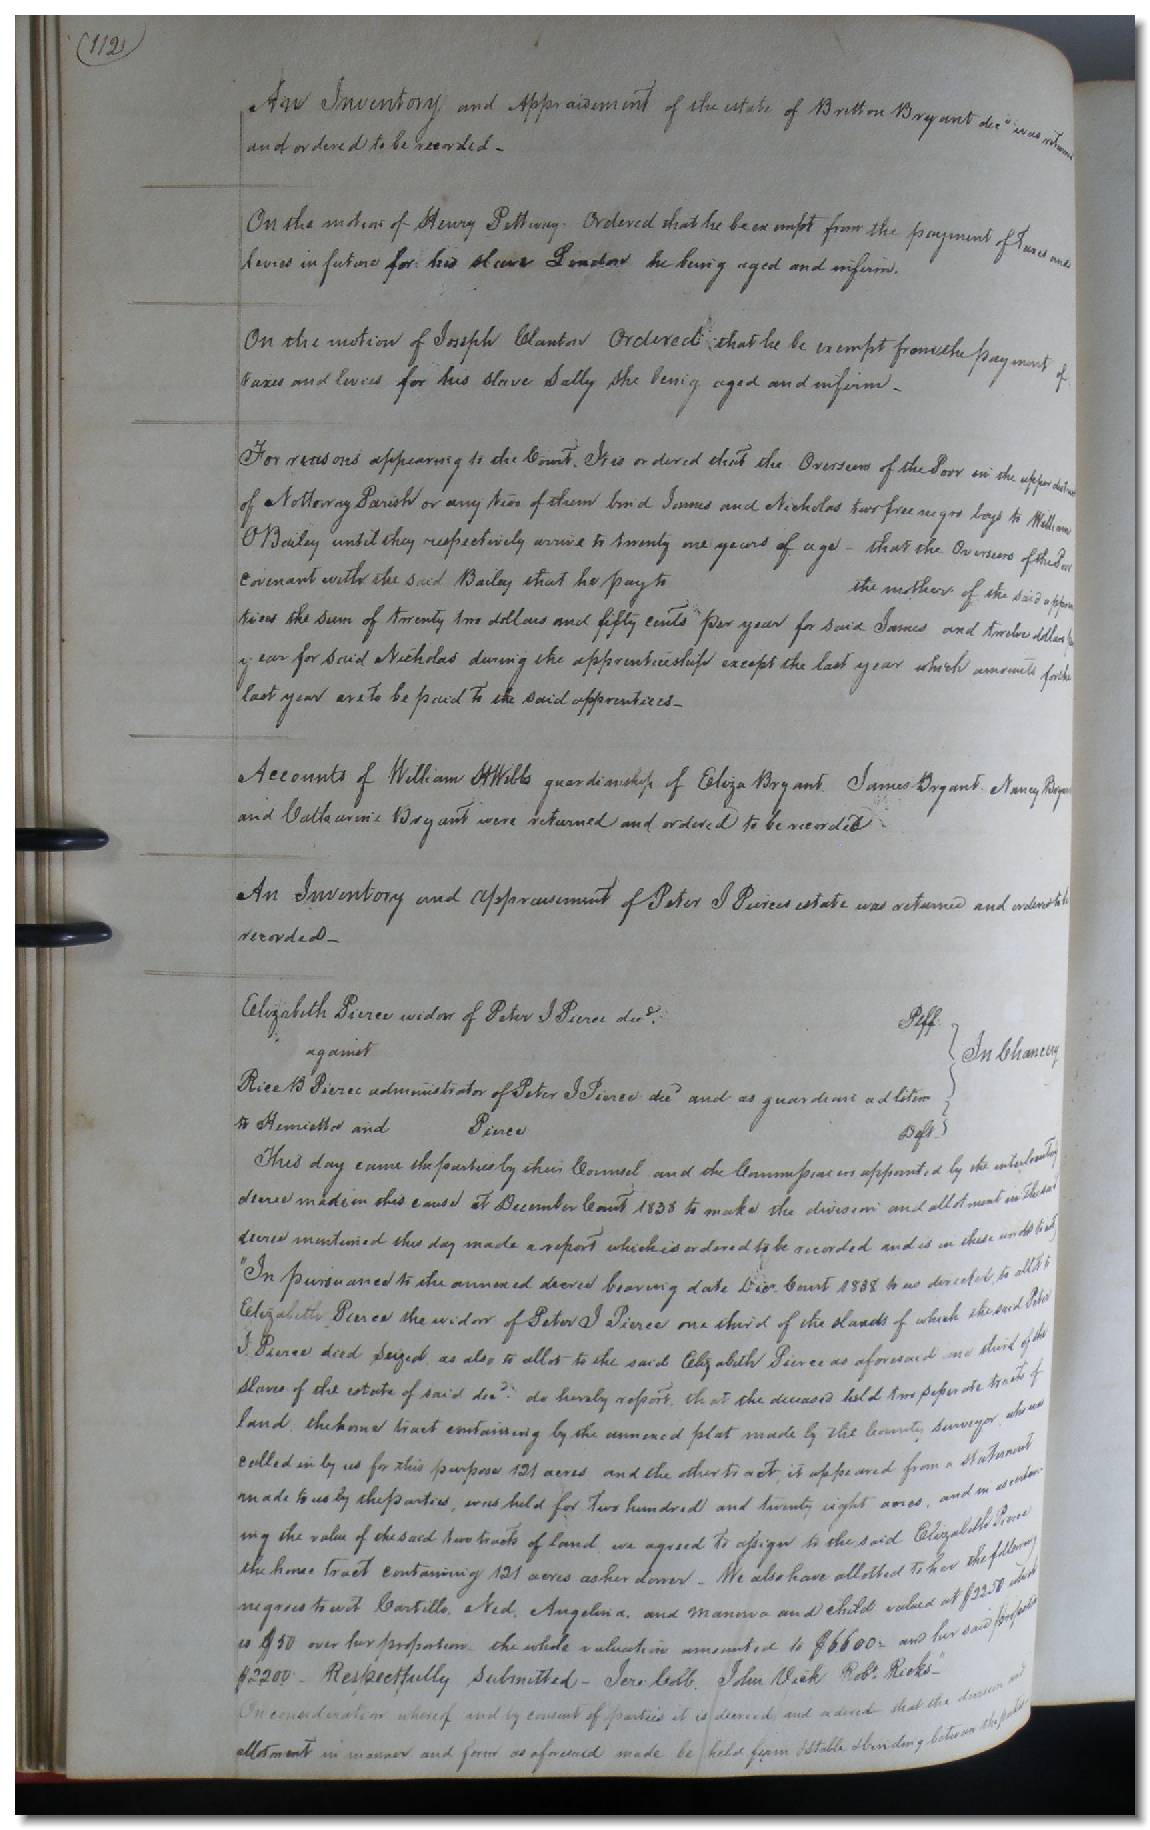 (112)
An Inventory and Appraisement of the estate of Britton Bryant decd was returned
and ordered to be recorded -
On the motion of Henry Pettway. Ordered that he be exempt from the payment of Taxes and
levies in future for his slave London he being aged and infirm.
On the motion of Joseph Clanton Ordered that he be exempt from the payment of
taxes and levies for his slave Sally she being aged and infirm -
For reasons appearing to the Court. It is ordered that the Overseers of the Poor in the upper district
of Nottoway Parish or any two of them bind James and Nicholas two free negro boys to William
O Bailey until they respectively arrive to twenty one years of age - that the Overseers of the Poor
covenant with the said Bailey that he pay to the mother of the said appren
tices the sum of twenty two dollars and fifty cents per year for said James and twelve dollars per
year for said Nicholas during the apprenticeship except the last year which amounts for the
last year are to be paid to the said apprentices -
Accounts of William H Webb guardianship of Eliza Bryant James Bryant Nancy Bryant
and Catharine Bryant were returned and ordered to be recorded
An Inventory and appraisement of Peter I Pierces estate was returned and ordered to be
recorded -
Elizabeth Pierce widow of Peter I Pierce decd. Plff.
against In Chancery
Rice B Pierce administrator of Peter I Pierce decd and as guardian ad litem
to Henrietta and Pierce Deft.
This day came the parties by their Counsel and the Commissioners appointed by the interlocutory
decree made in this cause at December Court 1838 to make the division and allotment in the said
decree mentioned this day made a report which is ordered to be recorded and is in these words to wit,
"In pursuance to the annexed decree bearing date Dec. Court 1838 to us directed, to allot to
Elizabeth Pierce the widow of Peter I Pierce one third of the lands of which the said Peter
I. Pierce died seized, as also to allot to the said Elizabeth Pierce as aforesaid one third of the
slaves of the estate of said decd. do hereby report, that the deceased held two seperate tracts of
land, the home tract containing by the annexed plat made by the County surveyor, who was
called in by us for this purpose 121 acres, and the other tract, it appeared from a statement
made to us by the parties, was held for two hundred and twenty eight acres, and in ascertain-
ing the value of the said two tracts of land, we agreed to assign to the said Elizabeth Pierce
the home tract containing 121 acres as her dower - We also have allotted to her the following
negroes to wit Ned, Angelina, and and child valued at $2250 which
is $50 over her proportion. the whole valuation amounted to $6600 - and her said proportion
$2200 - Respectfully Submitted - Jere. Cobb. John Vick Robt. Ricks -"
On consideration whereof and by consent of parties it is decreed and ordered that the division and
allotment in manner and form as aforesaid made be held firm & binding between the parties